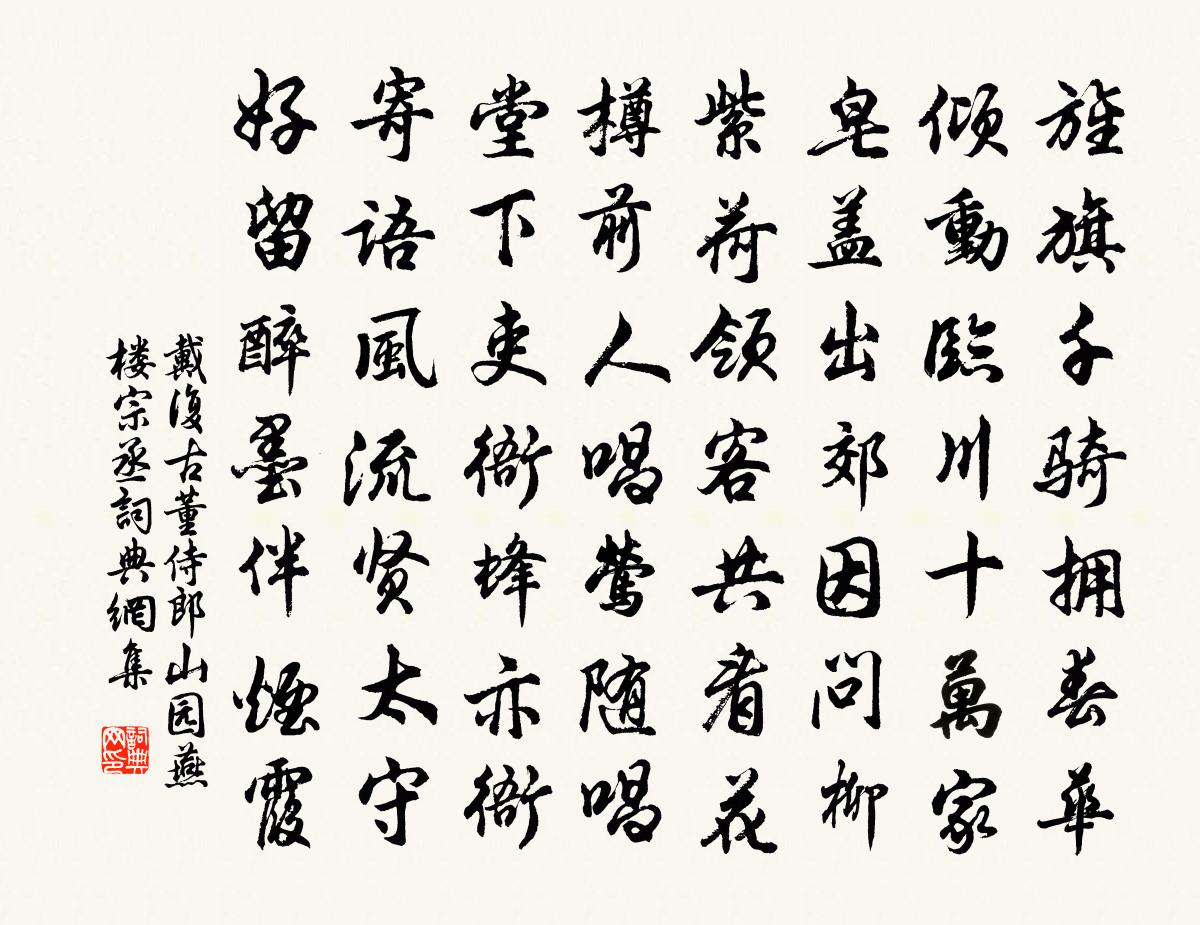 旌旗千骑拥春華
倾動臨川十萬家
皂盖出郊因问柳
紫荷领客共看花
樽前人唱莺随唱
堂下吏衙蜂亦衙
寄语風流贤太守
好留醉墨伴煙霞
戴復古董侍郎山园燕
楼宗丞詞典網集
詞典网印